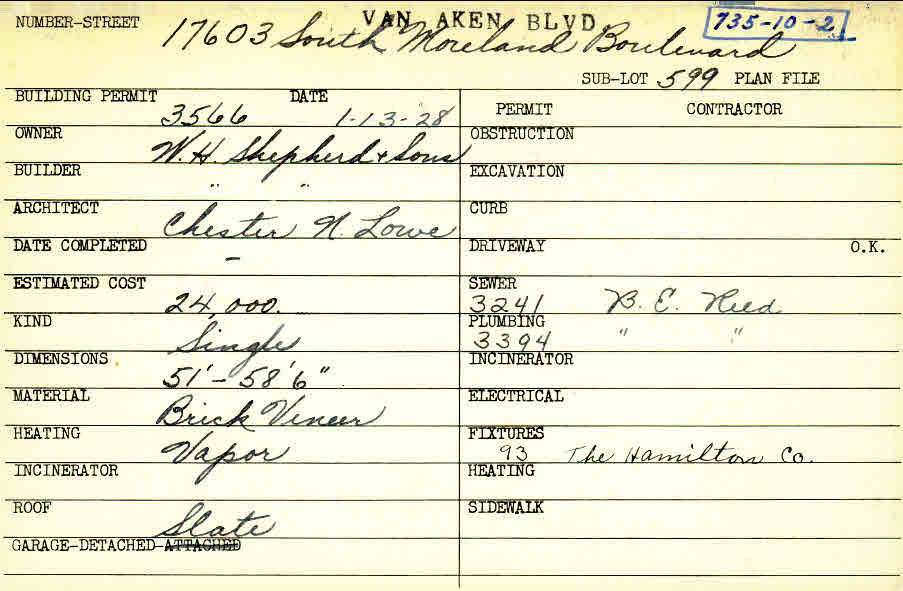 VAN AKEN BLVD
735-10-2
NUMBER-STREET 17603 South Moreland Boulevard
SUB-LOT 599 PLAN FILE
BUILDING PERMIT 3566 DATE 1-13-28
PERMIT CONTRACTOR
OWNER W.H. Shepherd & Sons
OBSTRUCTION
BUILDER " "
EXCAVATION
ARCHITECT Chester N. Lowe
CURB
DATE COMPLETED -
DRIVEWAY O.K.
ESTIMATED COST 24,000.
SEWER 3241 B. E. Reed
KIND Single
PLUMBING 3394 " "
DIMENSIONS 51' - 58'6"
INCINERATOR
MATERIAL Brick Veneer
ELECTRICAL
HEATING Vapor
FIXTURES 93 The Hamilton Co.
INCINERATOR
HEATING
ROOF Slate
SIDEWALK
GARAGE-DETACHED-ATTACHED